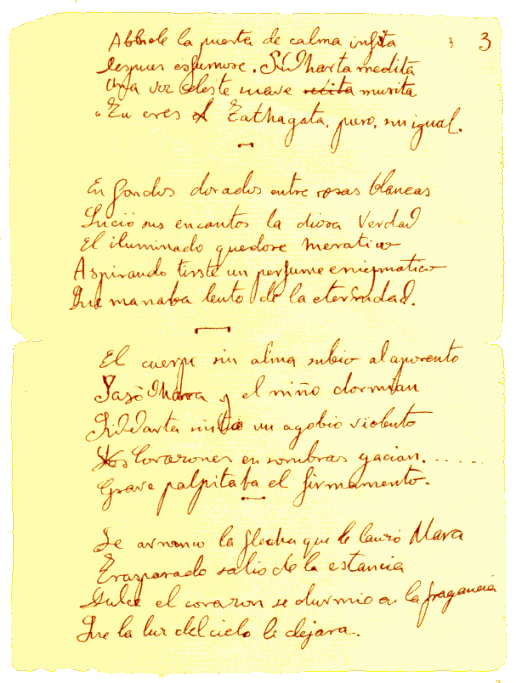 3 3
Abbrole la puerta de calma infita
despues esfumose. Sidharta medita
Una voz celeste suave recita musita
"Tu eres el Tathagata, puro, sin igual.
En fondos dorados entre rosas blancas
Lució sus encantos la diosa Verdad
El iluminado quedose meratico
Aspirando triste un perfume enigmatico
Que manaba lento de la eternidad.
El cuerpo sin alma subio al aposento
Yasodhara y el niño dormian
Siddarta sintió un agobio violento
Los Corazones en sombras yacian......
Grave palpitaba el firmamento.
Se arranco la flecha que le lanzó Mara
Traspasado salio de la estancia
Dulce el corazon se durmio a la fragancia
Que la luz del cielo le dejara..